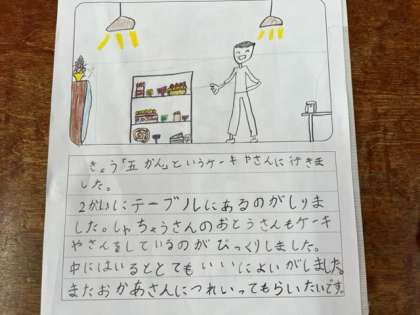 きょう「五かん」というケーキやさんに行きま
した。
2かいにテーブルにあるのがしりま
した。しゃちょうさんのおとうさんもケーキ
やさんをしているのがびっくりしました。
中にはいるととてもいいによいがしました。
またおかあさんにつれいってもらいたいです。